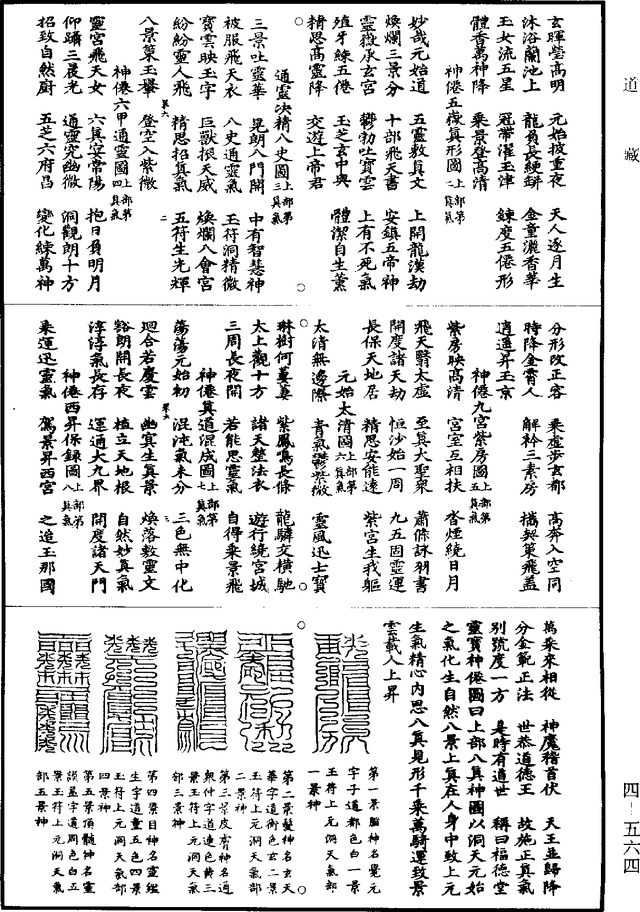 道藏
玄暉瑩高明　元始披重夜　天人逐月生
沐浴蘭池上　龍負長練鉼　金童灑香華
玉女流五星　冠帶濯玉津　鍊度五僊形
體香萬神降　乘景登高清
神僊五嶽真形圖上部第三真氣
妙哉元始道　五靈敷真文　上開龍漢劫
煥爛三景分　十部飛天書　安鎮五帝神
靈嶽承玄宮　鬱勃吐寶雲　上有不死氣
殖牙練五僊　玉芝玄中奧　體潔自生薰
精思高靈降　交遊上帝君
通靈決精八史圖上部第三真氣
三景吐靈華　晃朗八門開　中有智慧神
被服飛天衣　八史通靈氣　玉符洞精微
寶雲映玉字　巨獸振天威　煥爛八會宮
紛紛靈人飛　精思招真氣　五符生光輝
八景策玉轝　登空入紫微
神僊六甲通靈圖上部第四真氣
靈宮飛天女　六真安常陽　抱日負明月
仰躡三夜光　通靈究幽微　洞觀朗十方
招致自然廚　五芝六府昌　變化練萬神
分形改正容　乘虛步玄都　高奔入空同
時降金霄人　解衿三素房　攜契策飛蓋
逍遙昇玉京
神僊九宮紫房圖上部第五真氣
紫房映高清　宮室互相扶　杳煙繞日月
飛天翳太虛　至真大聖眾　蕭條詠羽書
開度諸天劫　恒沙始一周　九五固靈運
長保天地居　精思安能遠　紫宮生我軀
元始太清圖上部第六真氣
太清無邊際　青氣鬱紫微　靈風迅士寶
琳樹何蓁蓁　紫鳳鳴長條　龍驎交橫馳
太上觀十方　諸天整法衣　遊行繞宮城
三周長夜開　若能思靈氣　自得乘景飛
神僊真道混成圖上部第七真氣
蕩蕩元始初　混沌氣未分　三色無中化
迴合若慶雲　幽冥生真景　煥落敷靈文
豁朗開長夜　植立天地根　自然妙真氣
淳淳氣長存　運通大九界　開度諸天門
神僊西昇保錄圖上部第八真氣
乘運迅靈氣　駕景昇西宮　之造玉那國
萬乘來相從　神魔稽首伏　天王並歸降
分金範正法　世恭道德王　故施正真氣
別號度一方　是時有道世　稱曰福德堂
靈寶神僊圖曰上部八真神圖以洞天元始
之氣化生自然八景上真在人身中致上元
生氣精心內思八真見形千乘萬騎運致景
雲載人上昇
第一景腦神名覺元
字子道都色白一景
玉符上元洞天氣部
一景神
第二景髮神名玄天
華字道衝色玄二景
玉符上元洞天氣部
二景神
第三景皮膚神名通
眾仲字道連色黃三
景玉符上元洞天氣
部三景神
第四景目神名靈鑑
生字道童五色四景
玉符上元洞天氣部
四景神
第五景頂髓神名靈
謨蓋字道周色白五
景玉符上元洞天氣
部五景神
四—五六四